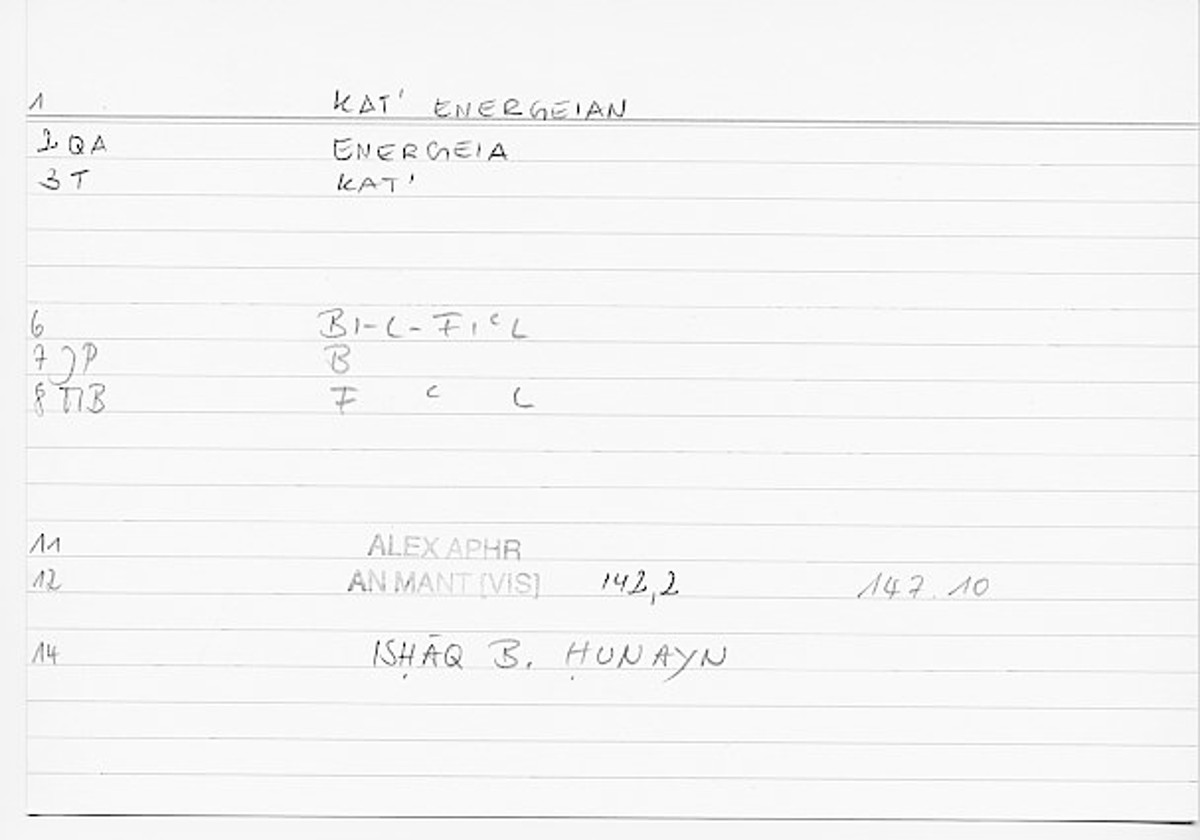 1 KAT' ENERGEIAN
2 QA ENERGEIA
3 T KAT'
6 BI-L-FIᶜL
7 JP B
8 TIB F ᶜ L
11 ALEX APHR
12 AN MANT [VIS] 142,2 147.10
14 ISḤĀQ B. ḤUNAYN